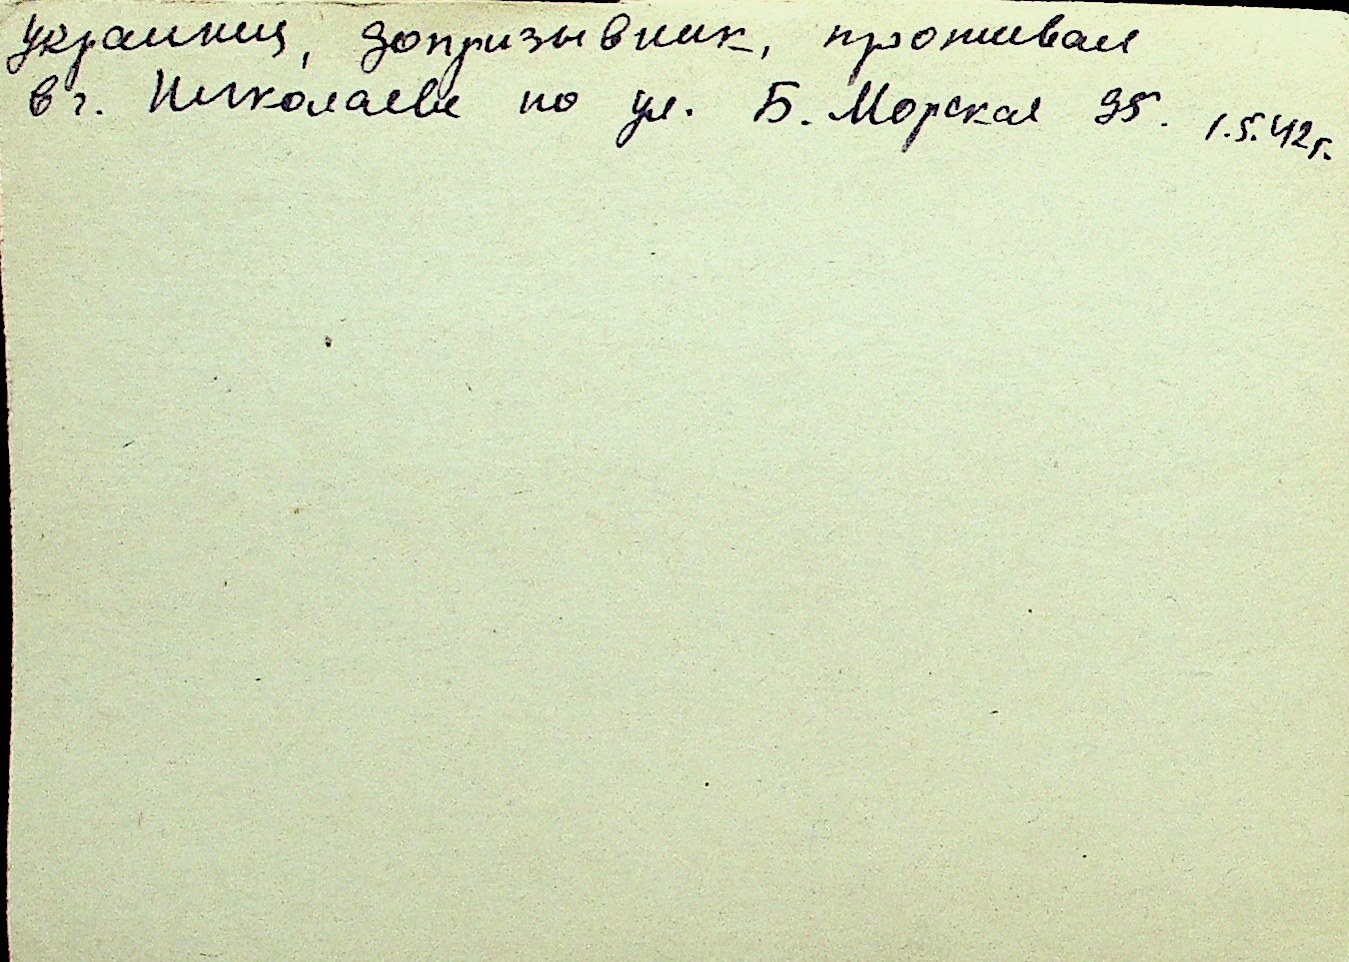 украинец, допризывник, проживал
в г. Николаеве по ул. Б. Морская 95. 1.5.42 г.